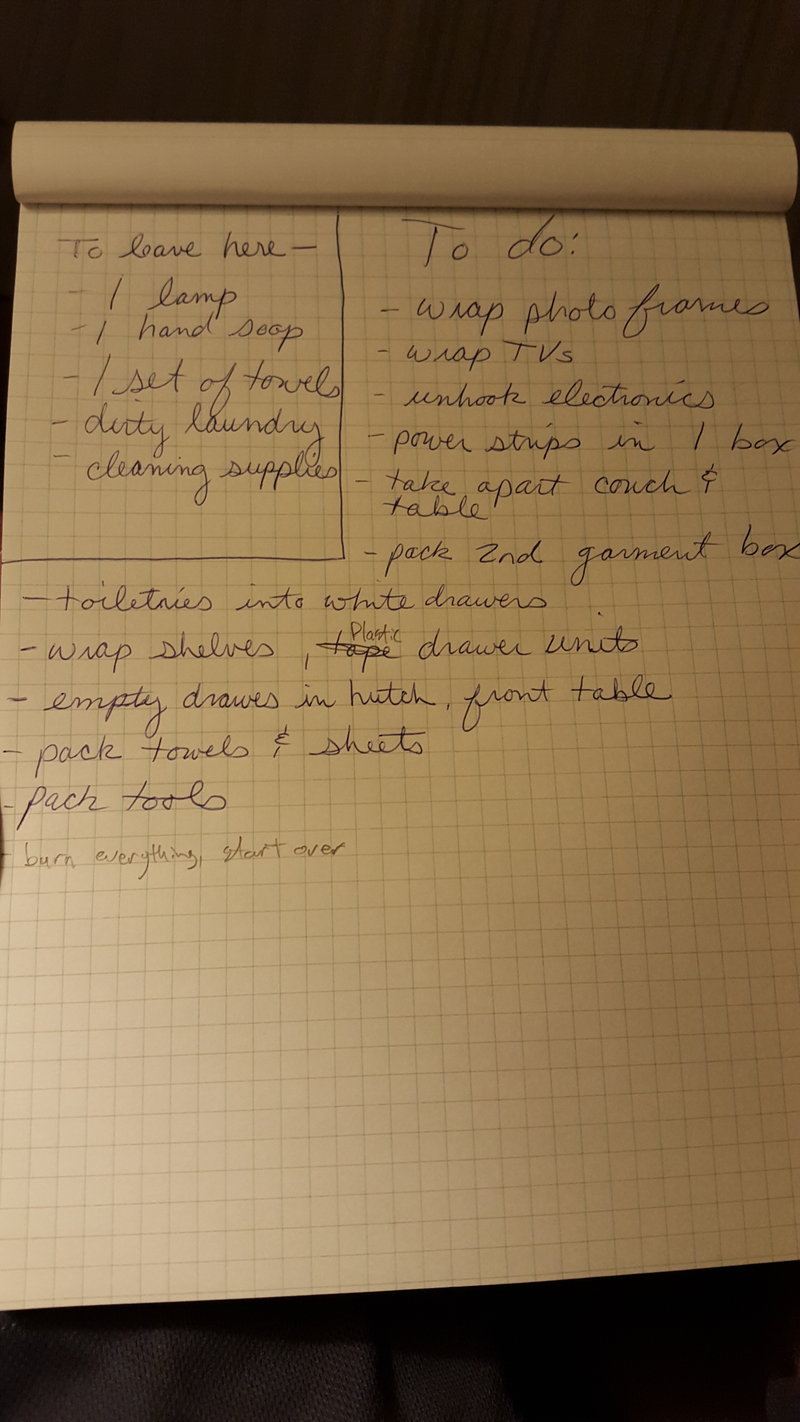 To leave here —
- 1 lamp
- 1 hand soap
- 1 set of towels
- dirty laundry
- cleaning supplies
To do:
- wrap photo frames
- wrap TVs
- unhook electronics
- power strips in 1 box
- take apart couch &
table
- pack 2nd garment box
- toiletries into white drawers
- wrap shelves, tape Plastic drawer units
- empty drawes in hutch, front table
- pack towels & sheets
- pack tools
- burn everything, start over